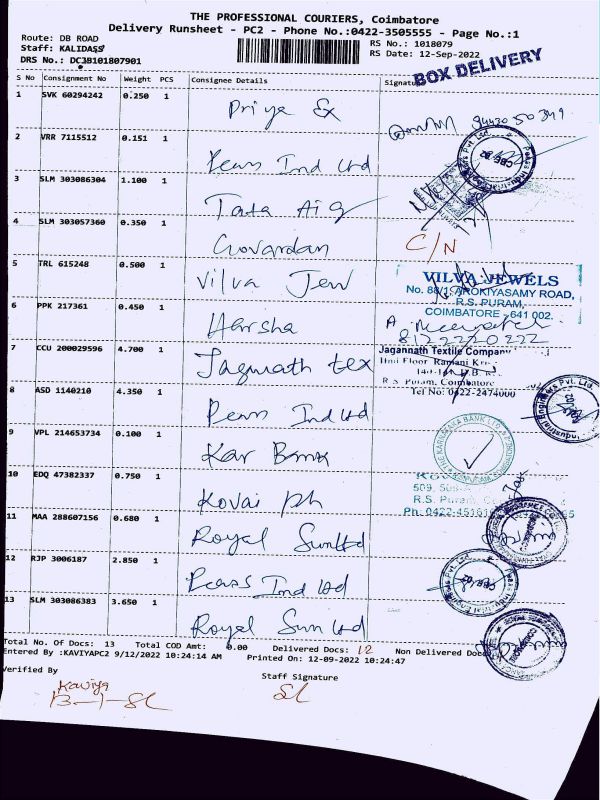 THE PROFESSIONAL COURIERS, Coimbatore
Delivery Runsheet - PC2 - Phone No.:0422-3505555 - Page No.:1
Route: DB ROAD
RS No.: 1018079
Staff: KALIDASS
RS Date: 12-Sep-2022
BOX DELIVERY
S No Consignment No Weight PCS Consignee Details Signature
1 SVK 60294242 0.250 1 Priya Ex
2 VRR 7115512 0.151 1 Pears Ind Ltd
3 SLM 303086304 1.100 1 Tata Aig
4 SLM 303057360 0.350 1 Govardan C/N
5 TRL 615248 0.500 1 Vilva Jew
VILVA JEWELS
No. 88/1, AROKIYASAMY ROAD,
R.S. PURAM,
COIMBATORE - 641 002.
6 PPK 217361 0.450 1 Harsha
8122220222
7 CCU 200029596 4.700 1 Jagnnath tex
Jagannath Textile Company
R S Puram, Coimbatore
Tel No: 0422-2474000
8 ASD 1140210 4.350 1 Pears Ind Ltd
9 VPL 214653734 0.100 1 Kar Bank
THE KARNATAKA BANK LTD.
10 EDQ 47382337 0.750 1 Kovai Ph
R.S. Puram,
11 MAA 288607156 0.680 1 Royal Sun Ltd
12 RJP 3006187 2.850 1 Pears Ind Ltd
13 SLM 303086383 3.650 1 Royal Sun Ltd
Total No. Of Docs: 13 Total COD Amt: 0.00 Delivered Docs: 12 Non Delivered Docs
Entered By :KAVIYAPC2 9/12/2022 10:24:14 AM Printed On: 12-09-2022 10:24:47
Verified By Staff Signature
Kaviya